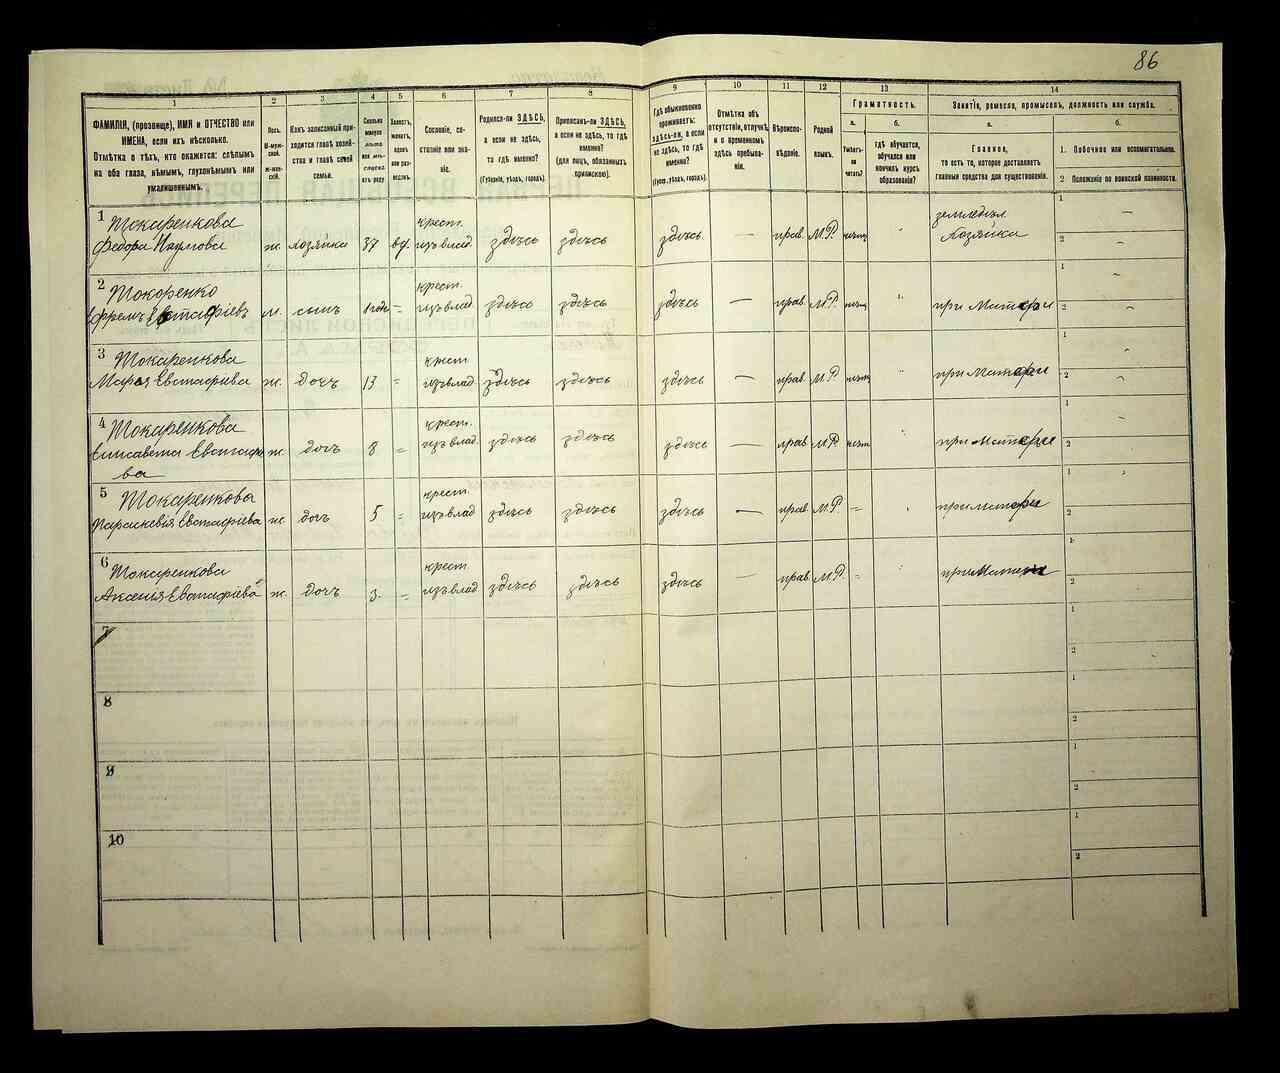 86
1 2 3 4 5 6 7 8 9 10 11 12 13 14
ФАМИЛІЯ, (прозвище), ИМЯ и ОТЧЕСТВО или
ИМЕНА, если ихъ нѣсколько.
Отмѣтка о тѣхъ, кто окажется: слѣпымъ
на оба глаза, нѣмымъ, глухонѣмымъ или
умалишеннымъ.
Полъ.
М-муж-
ской.
Ж-жен-
скій.
Какъ записанный при-
ходится главѣ хозяй-
ства и главѣ своей
семьи.
Сколько
минуло
лѣтъ
или мѣ-
сяцевъ
отъ роду
Холостъ,
женатъ,
вдовъ
или раз-
веденъ.
Сословіе, со-
стояніе или зва-
ніе.
Родился-ли ЗДѢСЬ,
а если не здѣсь,
то гдѣ именно?
(Губернія, уѣздъ, городъ).
Приписанъ-ли ЗДѢСЬ,
а если не здѣсь, то гдѣ
именно?
(для лицъ, обязанныхъ
припискою).
Гдѣ обыкновенно
проживаетъ:
здѣсь-ли, а если
не здѣсь, то гдѣ
именно?
(Губер., уѣздъ, городъ).
Отмѣтка объ
отсутствіи, отлучкѣ
и о временномъ
здѣсь пребыва-
ніи.
Вѣроиспо-
вѣданіе.
Родной
языкъ.
Грамотность.
а.
Умѣетъ-
ли
читать?
б.
гдѣ обучается,
обучался или
кончилъ курсъ
образованія?
Занятіе, ремесло, промыселъ, должность или служба.
а.
Главное,
то есть то, которое доставляетъ
главныя средства для существованія.
б.
1. Побочное или вспомогательное.
2 Положеніе по воинской повинности.
1 Токаренкова крест. земледѣл.
Федора Наумова ж. хозяйка 37 вд. изъ влад. здѣсь здѣсь здѣсь — прав. М.Р. Хозяйка
2 Токоренко крест.
Ефремъ Евстафіевъ м. сынъ = изъ влад. здѣсь здѣсь здѣсь — прав М.Р. при Матери
3 Токаренкова крест
Марья Евстафіева ж. дочь 13 = изъ влад здѣсь здѣсь здѣсь — прав М.Р. при Матери
4 Токаренкова крест.
Елисавета Евстафі ж. дочь 8 = изъ влад. здѣсь здѣсь здѣсь — прав М.Р. при Матери
ева
5 Токаренкова крест
Параскевія Евстафіева ж дочь 5 = изъ влад здѣсь здѣсь здѣсь — прав. М.Р. = при матери
6 Токаренкова крест
Аксенія Евстафіева ж. дочь 3. = изъ влад здѣсь здѣсь здѣсь — прав М.Р. = при Матери
7
8
9
10